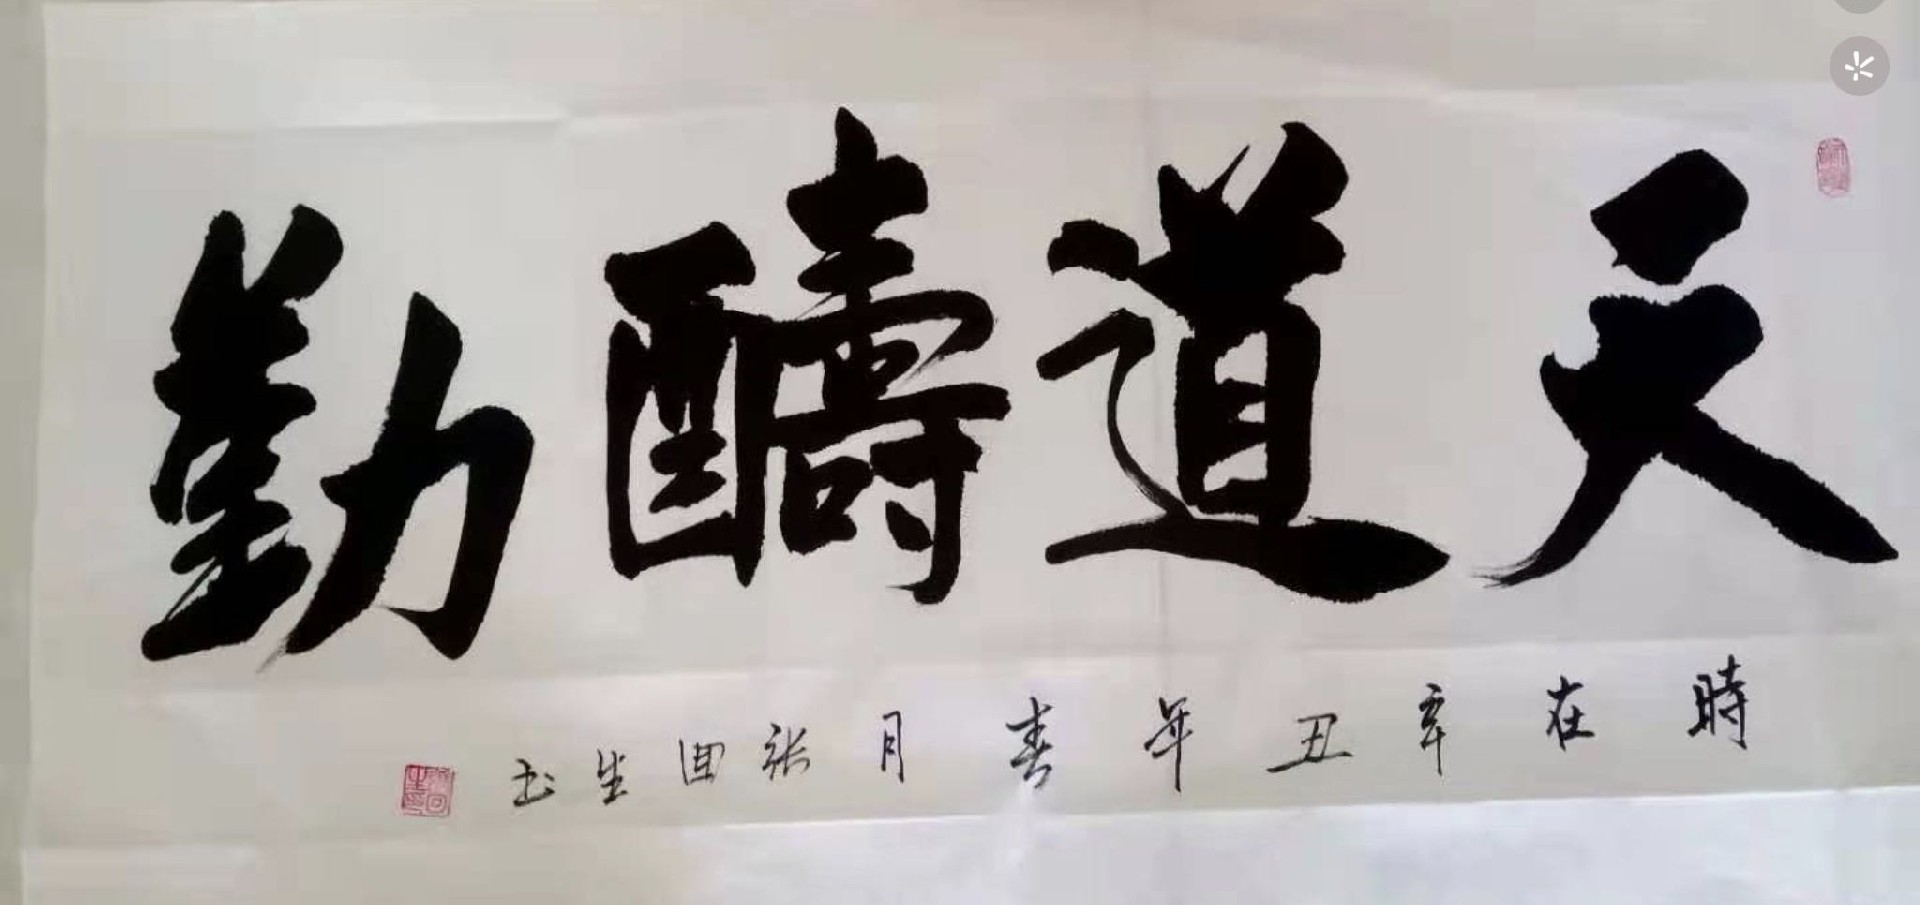 天道醻勤
時在辛丑年春月张回生书